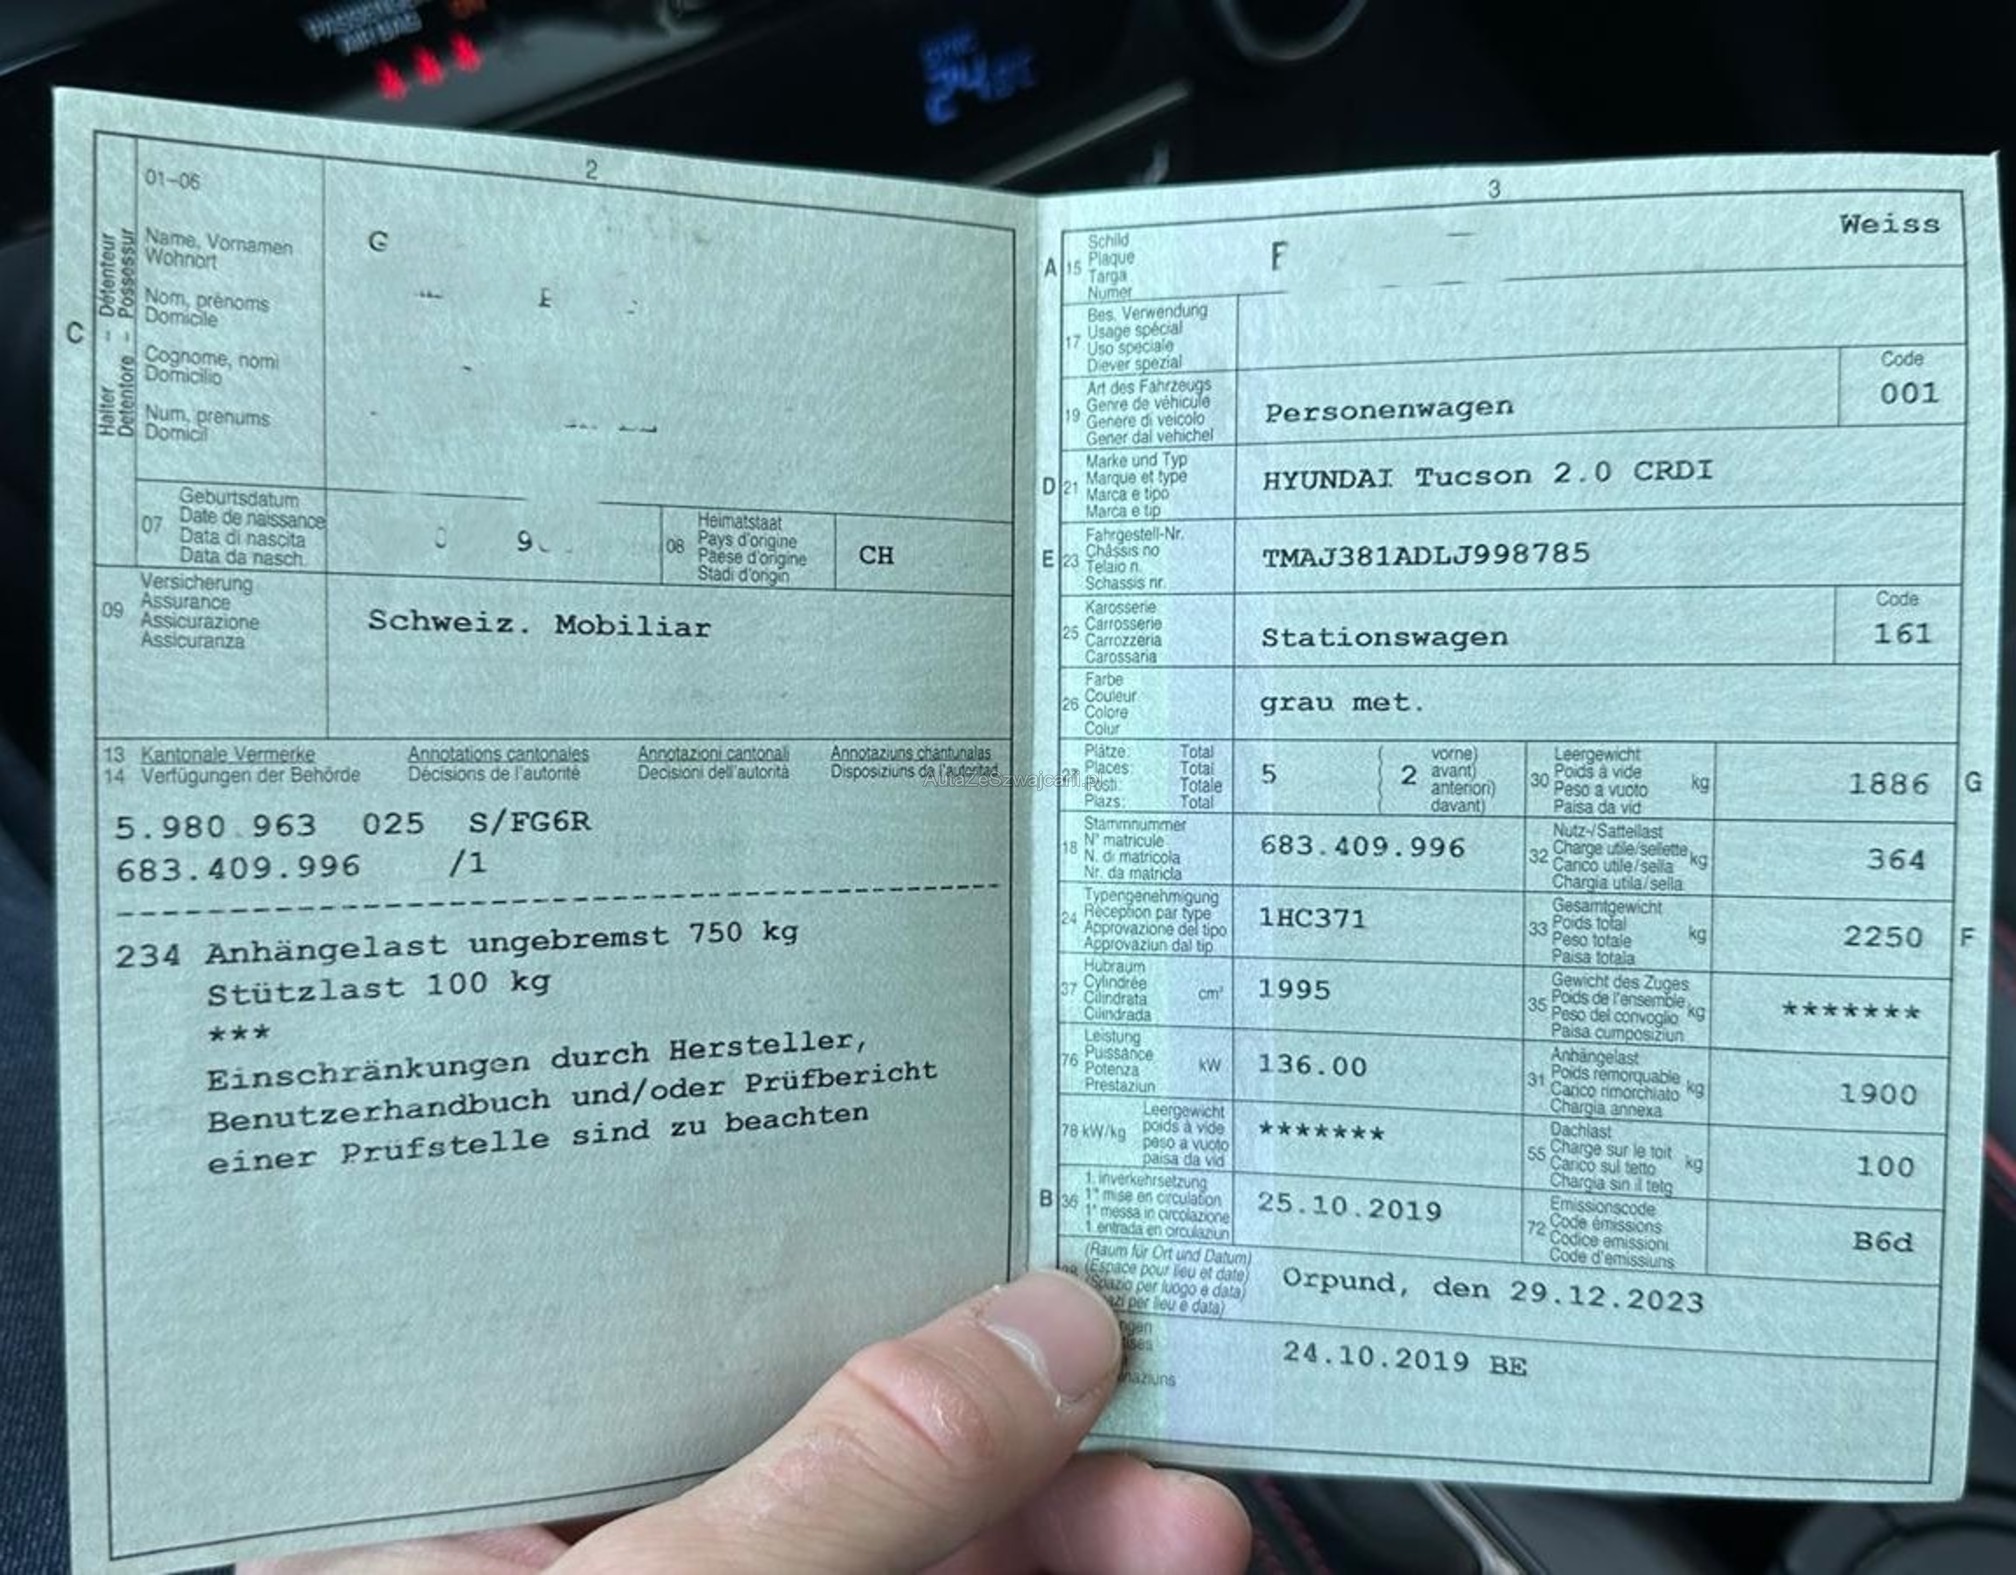 2
01-06
Name, Vornamen
Wohnort
Nom, prénoms
Domicile
Cognome, nomi
Domicilio
Num, prenums
Domicil
C
Halter - Détenteur
Detentore - Possessur
G
E
07
Geburtsdatum
Date de naissance
Data di nascita
Data da nasch.
9
08
Heimatstaat
Pays d'origine
Paese d'origine
Stadi d'origin
CH
09
Versicherung
Assurance
Assicurazione
Assicuranza
Schweiz. Mobiliar
13 Kantonale Vermerke Annotations cantonales Annotazioni cantonali Annotaziuns chantunalas
14 Verfügungen der Behörde Décisions de l'autorité Decisioni dell'autorità Disposiziuns da l'autoritad
AutaZeSzwajcarii.pl
5.980.963 025 S/FG6R
683.409.996 /1
234 Anhängelast ungebremst 750 kg
Stützlast 100 kg
***
Einschränkungen durch Hersteller,
Benutzerhandbuch und/oder Prüfbericht
einer Prüfstelle sind zu beachten
3
A 15
Schild
Plaque
Targa
Numer
Weiss
17
Bes. Verwendung
Usage spécial
Uso speciale
Diever spezial
19
Art des Fahrzeugs
Genre de véhicule
Genere di veicolo
Gener dal vehichel
Personenwagen
Code
001
D 21
Marke und Typ
Marque et type
Marca e tipo
Marca e tip
HYUNDAI Tucson 2.0 CRDI
E 23
Fahrgestell-Nr.
Châssis no
Telaio n.
Schassis nr.
TMAJ381ADLJ998785
25
Karosserie
Carrosserie
Carrozzeria
Carossaria
Stationswagen
Code
161
26
Farbe
Couleur
Colore
Colur
grau met.
Plätze: Total
Places: Total
Posti: Totale
Plazs: Total
5
2
vorne)
avant)
anteriori)
davant)
30
Leergewicht
Poids à vide
Peso a vuoto
Paisa da vid
kg
1886
G
18
Stammnummer
N° matricule
N. di matricola
Nr. da matricla
683.409.996
32
Nutz-/Sattellast
Charge utile/sellette
Carico utile/sella
Chargia utila/sella
kg
364
24
Typengenehmigung
Réception par type
Approvazione del tipo
Approvaziun dal tip
1HC371
33
Gesamtgewicht
Poids total
Peso totale
Paisa totala
kg
2250
F
37
Hubraum
Cylindrée
Cilindrata
Cilindrada
cm³
1995
35
Gewicht des Zuges
Poids de l'ensemble
Peso del convoglio
Paisa cumposiziun
kg
*******
76
Leistung
Puissance
Potenza
Prestaziun
kW
136.00
31
Anhängelast
Poids remorquable
Carico rimorchiato
Chargia annexa
kg
1900
78 kW/kg
Leergewicht
poids à vide
peso a vuoto
paisa da vid
*******
55
Dachlast
Charge sur le toit
Carico sul tetto
Chargia sin il tetg
kg
100
B 36
1. Inverkehrsetzung
1re mise en circulation
1a messa in circolazione
1. entrada en circulaziun
25.10.2019
72
Emissionscode
Code émissions
Codice emissioni
Code d'emissiuns
B6d
(Raum für Ort und Datum)
(Espace pour lieu et date)
(Spazio per luogo e data)
per lieu e data)
Orpund, den 29.12.2023
24.10.2019 BE